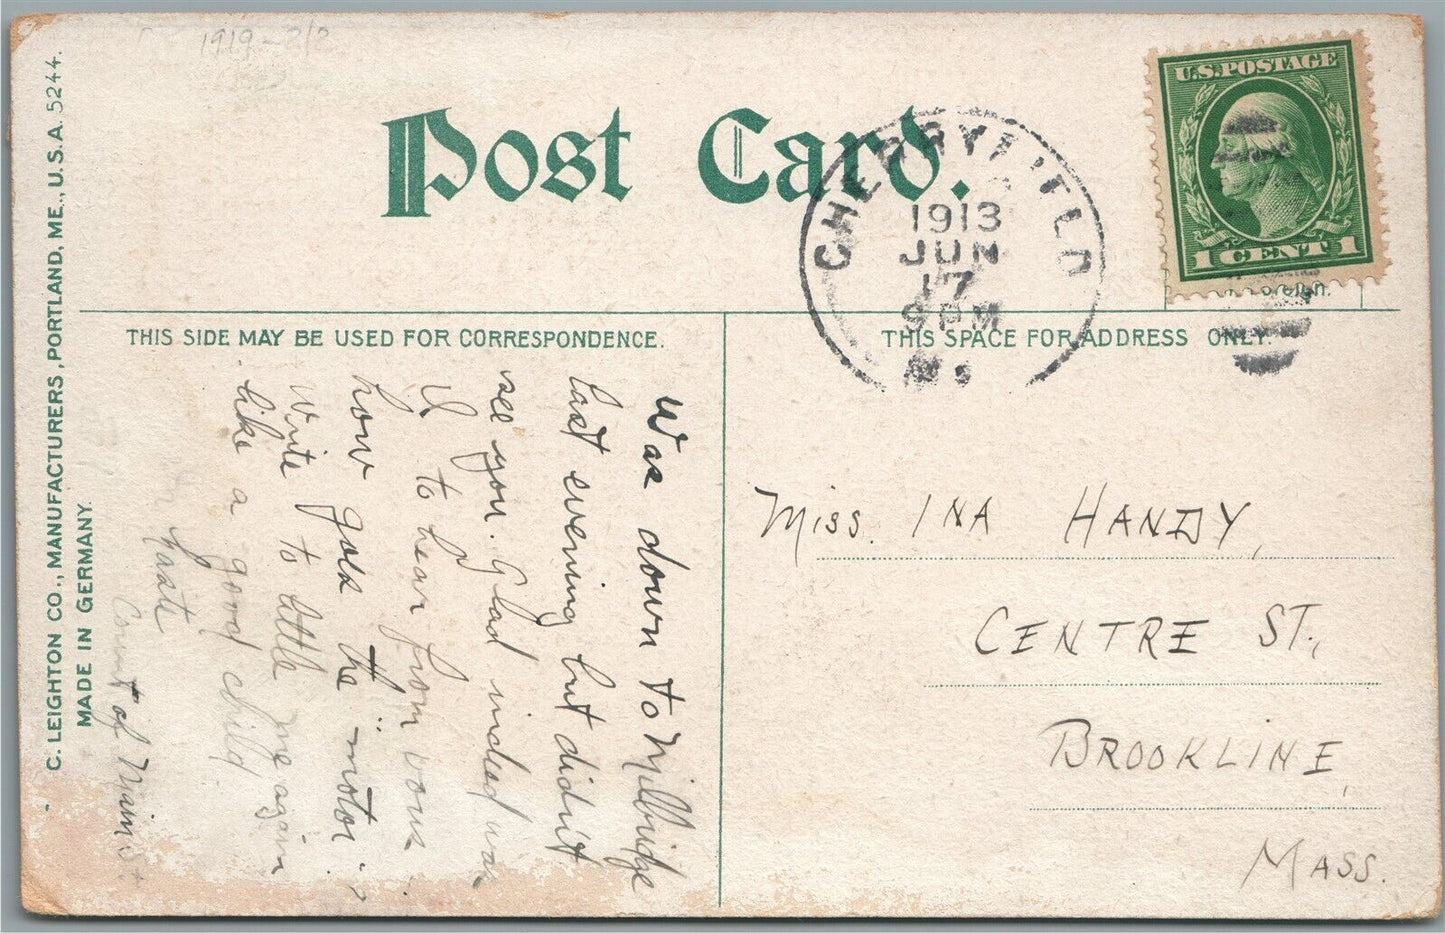 1919-2/2
Post Card.
U.S. POSTAGE
1 CENT 1
CHERRYFIELD
1913
JUN
17
9 PM
THIS SIDE MAY BE USED FOR CORRESPONDENCE.
THIS SPACE FOR ADDRESS ONLY.
C. LEIGHTON CO., MANUFACTURERS, PORTLAND, ME., U.S.A. 5244.
MADE IN GERMANY.
Was down to Millbridge
last evening but didn't
see you. Glad indeed was
I to hear from vous.
how goes the "motor"?
Write to little me again
like a good child
In haste
of Main St
Miss. INA HANDY,
CENTRE ST.,
BROOKLINE,
MASS.